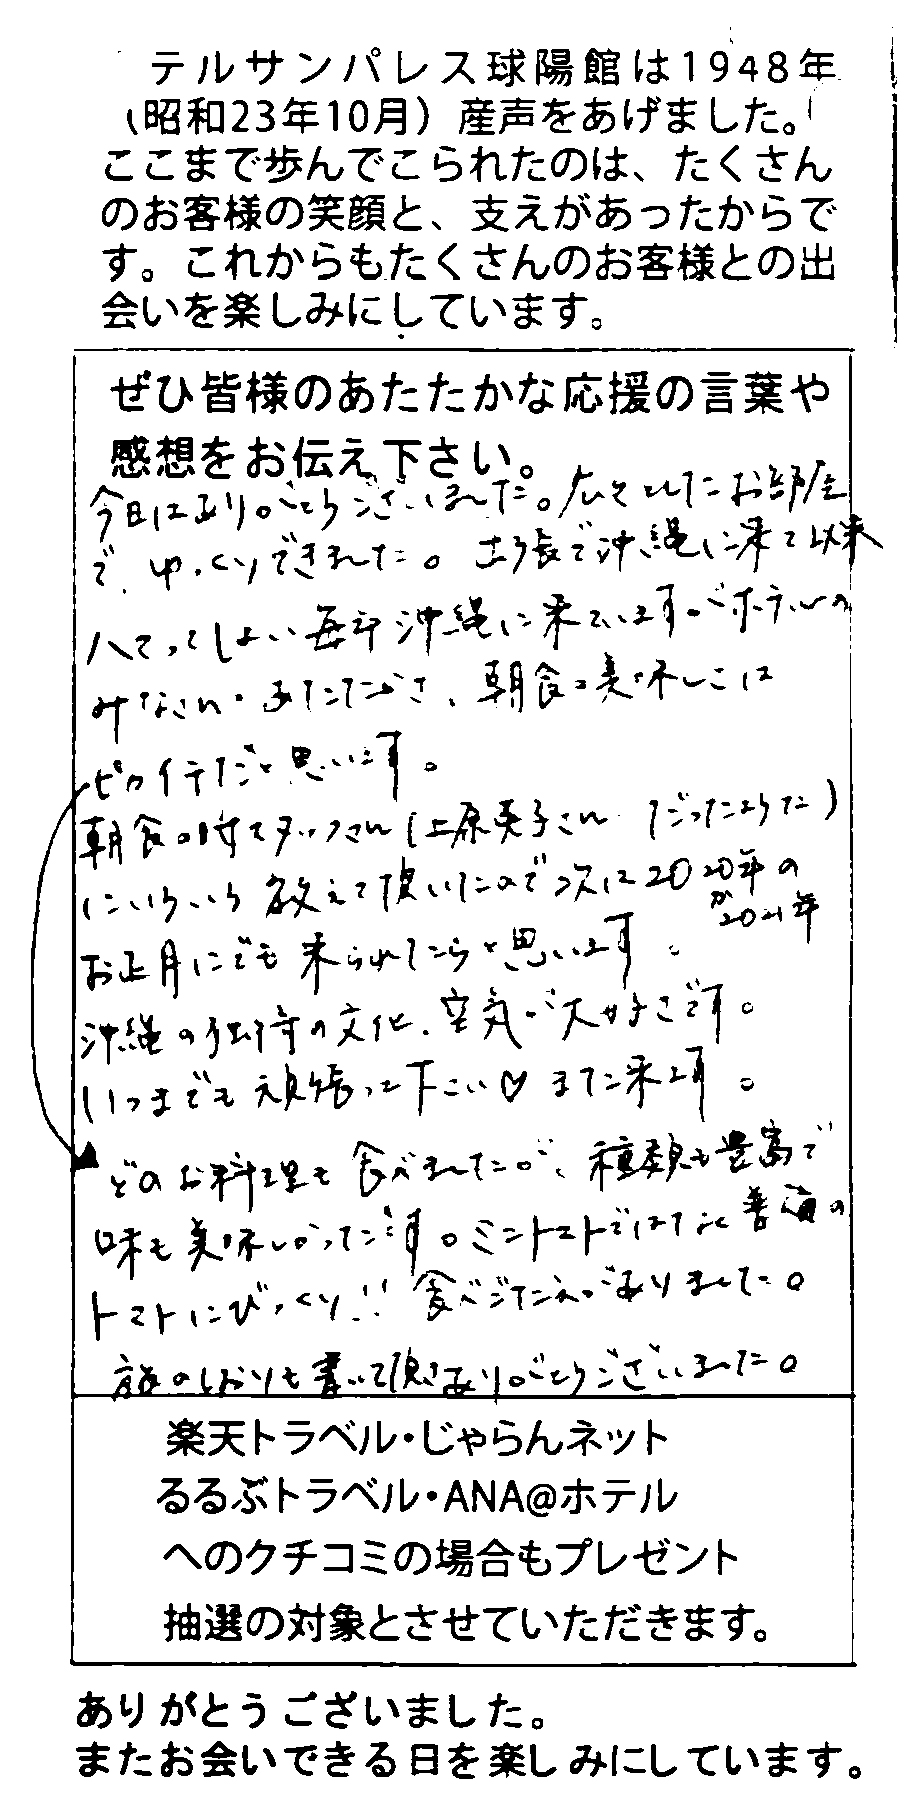 テルサンパレス球陽館は1948年
(昭和23年10月）産声をあげました。
ここまで歩んでこられたのは、たくさん
のお客様の笑顔と、支えがあったからで
す。これからもたくさんのお客様との出
会いを楽しみにしています。
ぜひ皆様のあたたかな応援の言葉や
感想をお伝え下さい。
今日はありがとうございました。広々としたお部屋
で、ゆっくりできました。出張で沖縄に来て以来
ハマってしまい毎年沖縄に来ていますがホテルの
みなさんのあたたかさ、朝食の美味しさは
ピカイチだと思います。
朝食の時スタッフさん(上原英子さんだったような)
にいろいろ教えて頂いたので次は2020年の
か2021年
お正月にでも来られたらと思います。
沖縄の独特の文化、空気が大好きです。
いつまでも頑張って下さい♡また来ます。
どのお料理も食べましたが、種類も豊富で
味も美味しかったです。ミニトマトではなく普通の
トマトにびっくり!!食べごたえがありました。
旅のしおりも書いて頂きありがとうございました。
楽天トラベル・じゃらんネット
るるぶトラベル・ANA@ホテル
へのクチコミの場合もプレゼント
抽選の対象とさせていただきます。
ありがとうございました。
またお会いできる日を楽しみにしています。